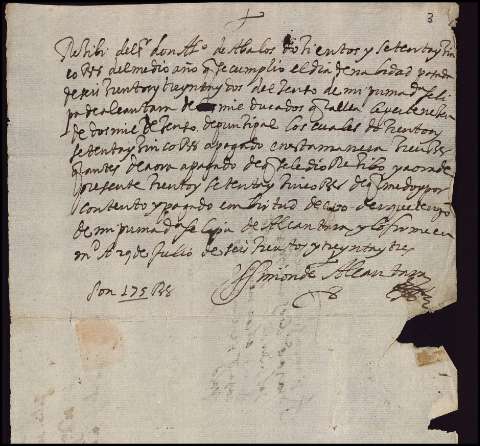 3
Recibi del sr don Alº de Abalos docientos y setenta y cin
co Rs del medio año q se cumplio el dia de nabidad pasada
de seis cientos y treynta y dos del censo de mi prima dª feli
pa de alcantara de mil ducados q
de dos mil de censo de prinçipal los cuales docientos y
setenta y cinco Rs a pagado en esta manera cien Rs
q antes de aora a pagado de q le di Recibo y aora de
presente ciento y setenta y cinco Rs de q me doy por
contento y pagado en birtud de
de mi prima dª felipa de Alcantara y lo firme en
mº A 29 de Julio de seis cientos y treynta y tres
Simon de Alcantara
Son 175 Rs